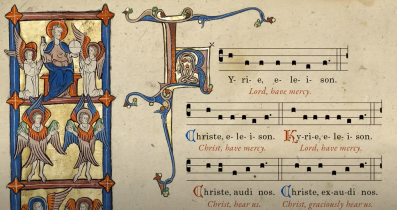 Y- ri- e, e- le- i- son.
Lord, have mercy.
Christe, e- le- i- son. Ky-ri-e, e- le- i- son.
Christ, have mercy. Lord, have mercy.
Christe, audi nos. Christe, ex-au-di nos.
Christ, hear us. Christ, graciously hear us.